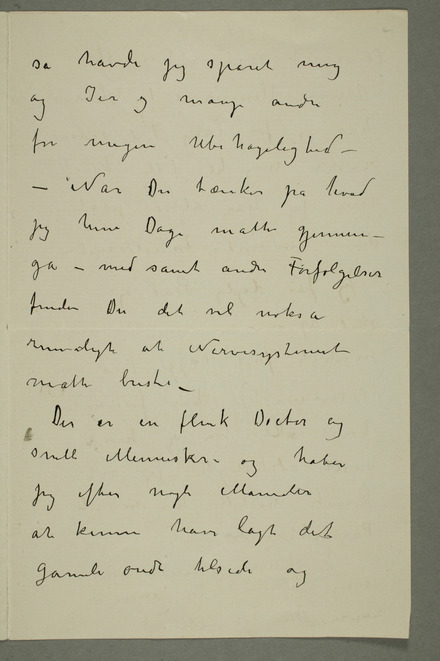 sa havde jeg sparet mig
og Jer og mange andre
for megen Ubehagelighed –
– Når Du tænker på hvad
jeg hine Dage matte gjennem-
gå – med samt andre Forfølgelser
finder Du det vel nok så
rimeligt at Nervesystemet
matte briste –
Der er en flink Doctor og
snille Mennesker – og håber
jeg efter nogle Måneder
at kunne have lagt det
gamle onde tilside og